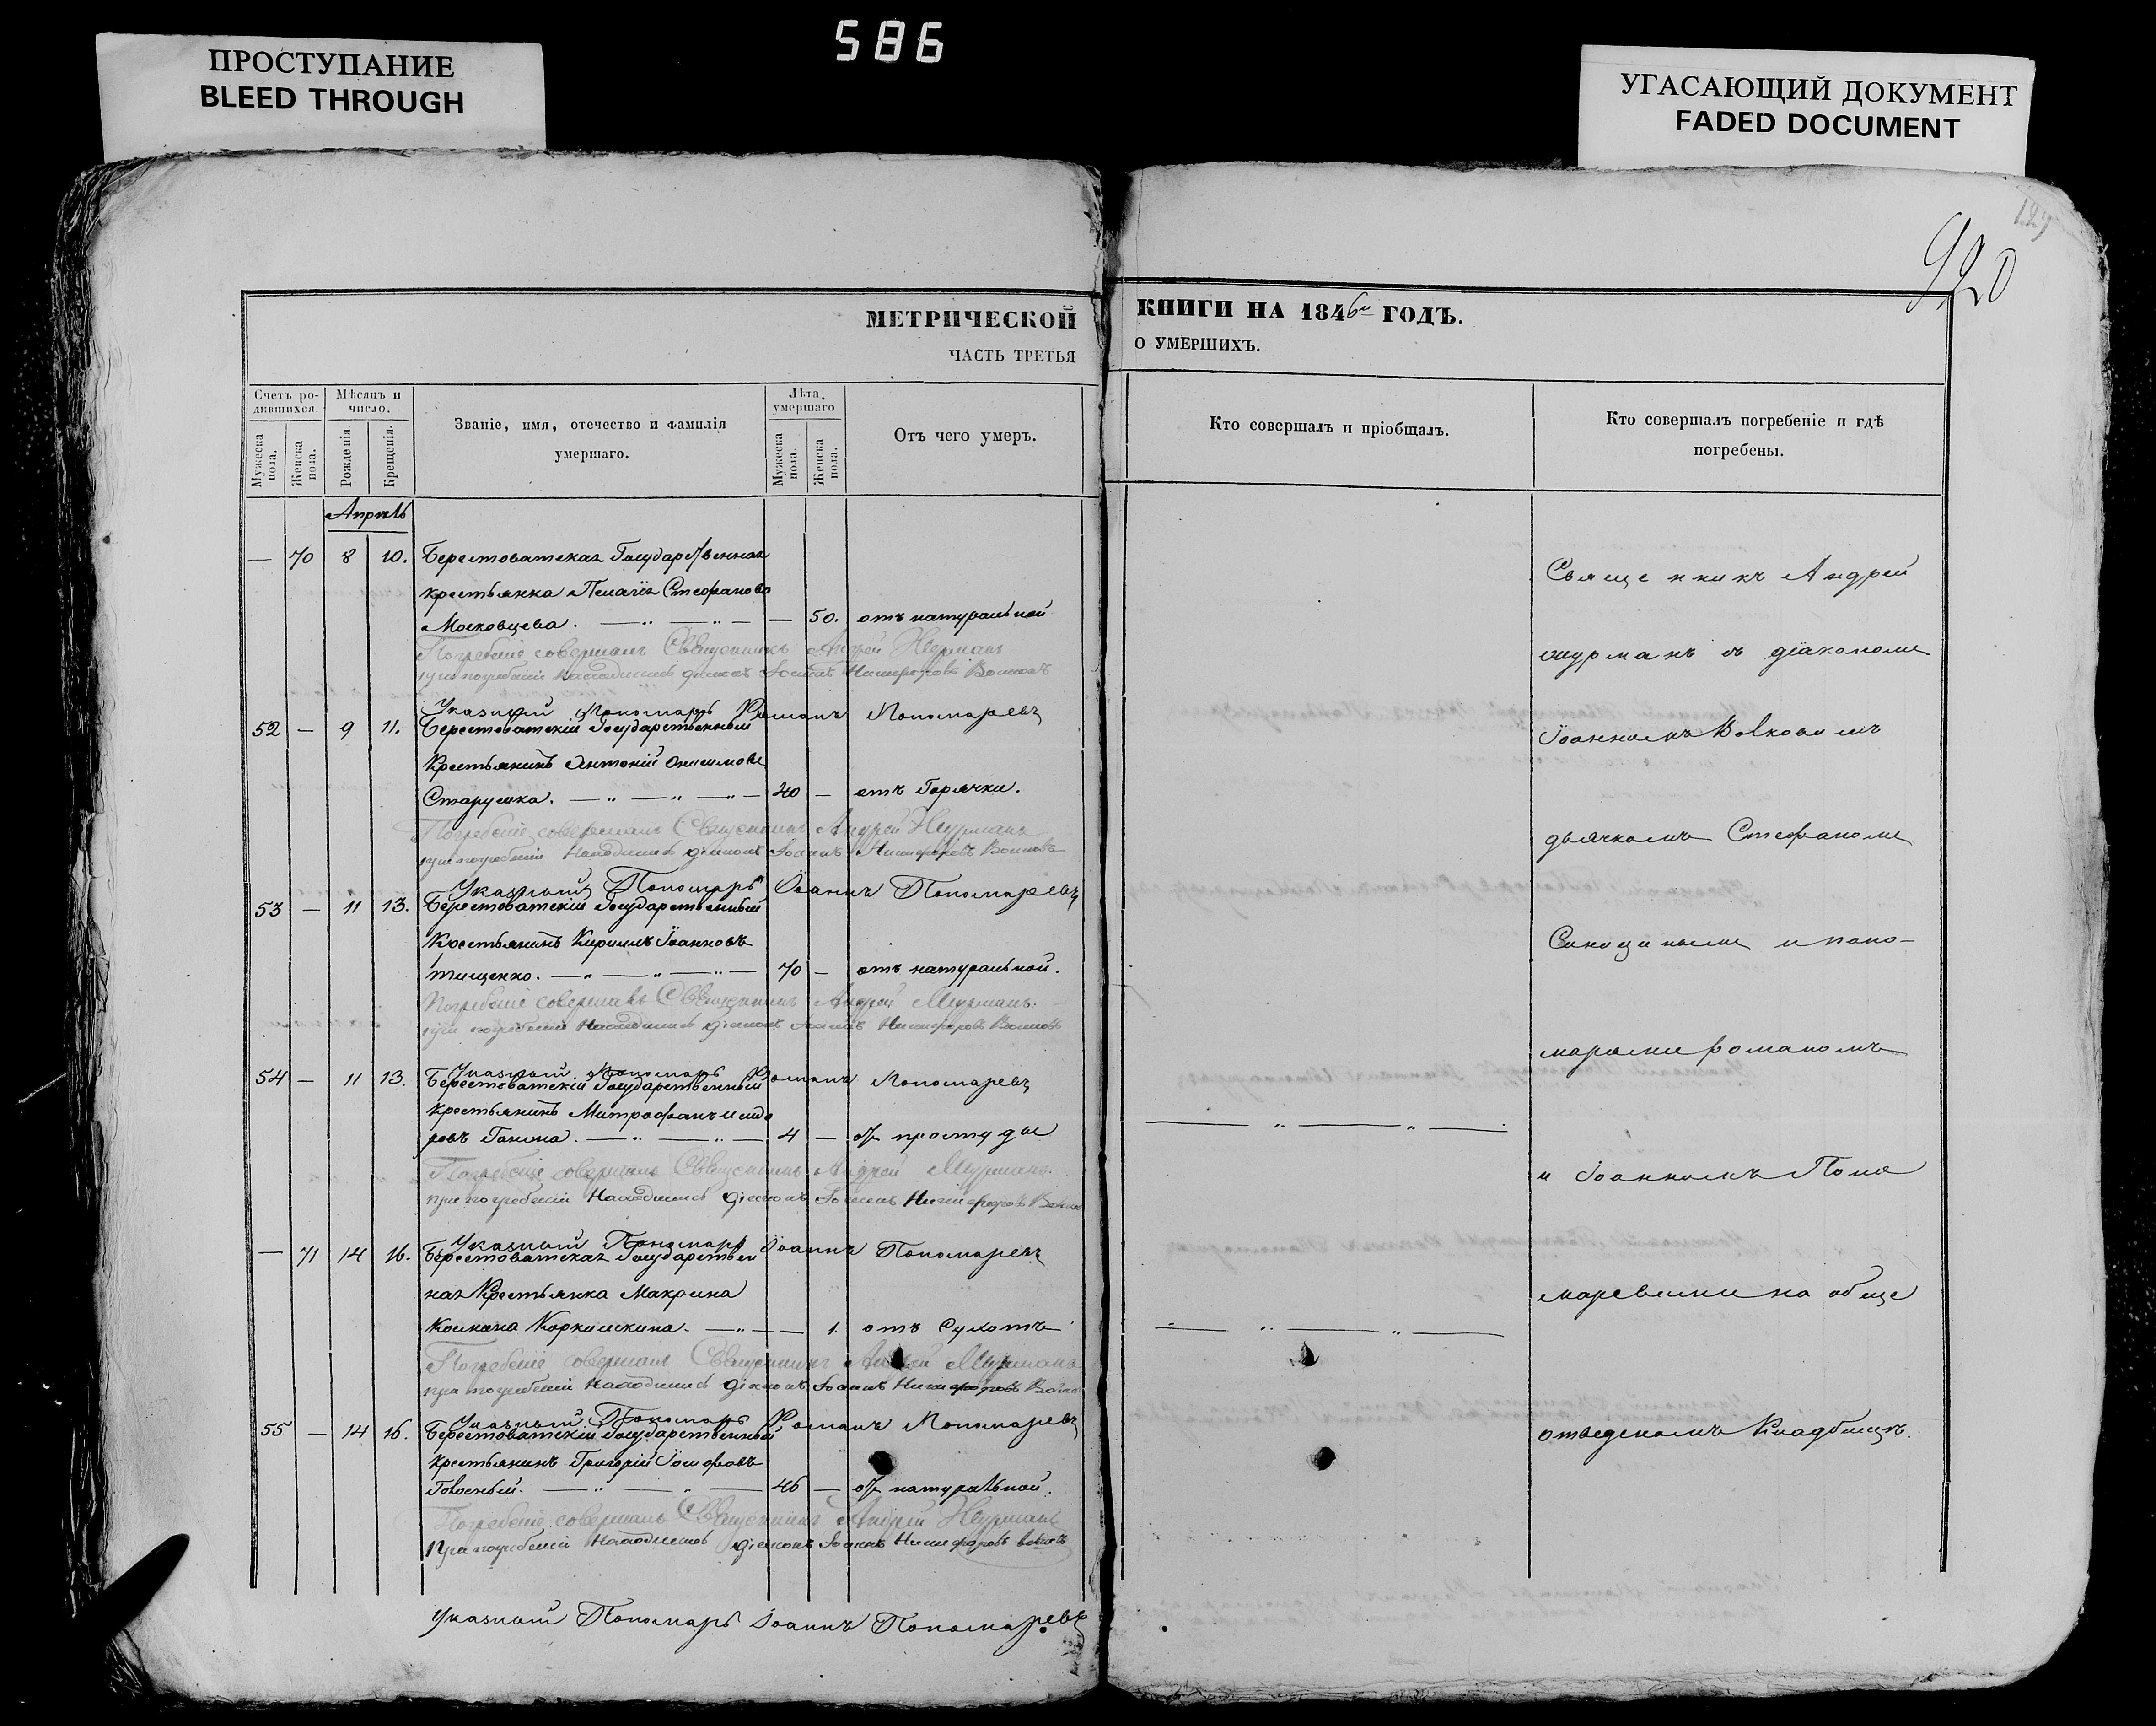 586
ПРОСТУПАНИЕ
BLEED THROUGH
УГАСАЮЩИЙ ДОКУМЕНТ
FADED DOCUMENT
127
920
МЕТРИЧЕСКОЙ
ЧАСТЬ ТРЕТЬЯ
Счетъ ро-
дившихся.
Мѣсяцъ и
число.
Званіе, имя, отечество и фамилія
умершаго.
Лѣта
умершаго
Отъ чего умеръ.
Мужеска
пола.
Женска
пола.
Рожденія.
Крещенія.
Мужеска
пола.
Женска
пола.
Апрѣль
— 70 8 10. Берестоватская Государственная
крестьянка Пелагія Стефанова
Московцева. — 50. отъ натуральной
Погребеніе совершалъ Священникъ Андрей Шурманъ
при погребеніи находились діаконъ Іоаннъ Никифоровъ Волковъ
Указный Пономарь Романъ Пономаревъ
52 — 9 11. Берестоватскій Государственный
Крестьянинъ Антоній Онисимовъ
Старушка. 40 — отъ Горячки.
Погребеніе совершалъ Священникъ Андрей Шурманъ
при погребеніи находились діаконъ Іоаннъ Никифоровъ Волковъ
Указный Пономарь Іоаннъ Пономаревъ
53 — 11 13. Берестоватскій Государственный
Крестьянинъ Кириллъ Іоанновъ
Тищенко. 70 — отъ натуральной.
Погребеніе совершалъ Священникъ Андрей Шурманъ.
при погребеніи находились діаконъ Іоаннъ Никифоровъ Волковъ
Указный Пономарь Романъ Пономаревъ
54 — 11 13. Берестоватскій Государственный
крестьянинъ Митрофанъ Исидо
ровъ 4 — отъ простуды
Погребеніе совершалъ Священникъ Андрей Шурманъ.
при погребеніи находились діаконъ Іоаннъ Никифоровъ
Указный Пономарь Іоаннъ Пономаревъ
— 71 14 16. Берестоватская Государствен
ная Крестьянка Макрина
1. отъ Сухотъ
Погребеніе совершалъ Священникъ Андрей Шурманъ
при погребеніи находились діаконъ Іоаннъ Никифоровъ
Указный Пономарь Романъ Пономаревъ
55 — 14 16. Берестоватскій Государственный
крестьянинъ Григорій Іосифовъ
46 — отъ натуральной.
Погребеніе совершалъ Священникъ Андрей Шурманъ
При погребеніи находились діаконъ Іоаннъ Никифоровъ Волковъ
Указный Пономарь Іоаннъ Пономаревъ
КНИГИ НА 1846й ГОДЪ.
О УМЕРШИХЪ.
Кто совершалъ и пріобщалъ.
Кто совершалъ погребеніе и гдѣ
погребены.
Священникъ Андрей
Шурманъ съ діакономъ
Іоанномъ Волковымъ
дьячкомъ Стефаномъ
и поно-
маремъ Романомъ
и Іоанномъ Поно
маревыми на обще
отведеномъ Кладбищѣ.